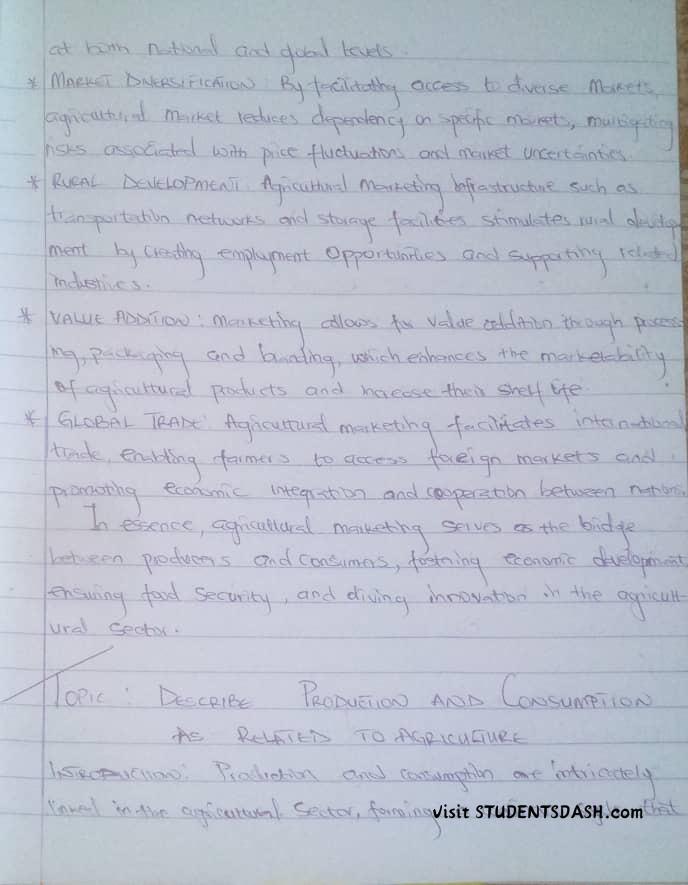 at both national and global levels.
* MARKET DIVERSIFICATION: By facilitating access to diverse markets,
agricultural market reduces dependency on specific markets, mitigating
risks associated with price fluctuations and market uncertainties.
* RURAL DEVELOPMENT: Agricultural marketing infrastructure such as
transportation networks and storage facilities stimulates rural develop
ment by creating employment opportunities and supporting related
industries.
* VALUE ADDITION: Marketing allows for value addition through process
ng, packaging and branding, which enhances the marketability
of agricultural products and increase their shelf life.
* GLOBAL TRADE: Agricultural marketing facilitates international
trade, enabling farmers to access foreign markets and
promoting economic integration and cooperation between nations.
In essence, agricultural marketing serves as the bridge
between producers and consumers, fostering economic development
ensuring food security, and driving innovation in the agricult
ural sector.
TOPIC: DESCRIBE PRODUCTION AND CONSUMPTION
AS RELATED TO AGRICULTURE
INTRODUCTION: Production and consumption are intricately
linked in the agricultural sector, forming that
Visit STUDENTSDASH.com